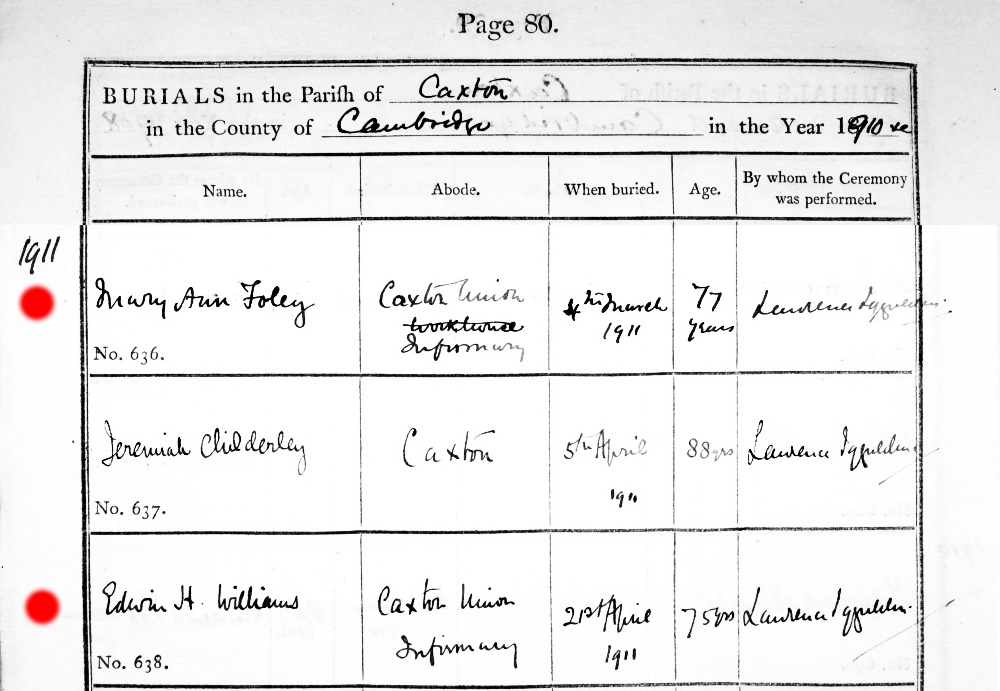 Page 80.
BURIALS in the Pariſh of Caxton
in the County of Cambridge in the Year 1910
Name. Abode. When buried. Age. By whom the Ceremony was performed.
1911
Mary Ann Foley Caxton Union 4th March 77 Lawrence
workhouse 1911 years
Infirmary
No. 636.
Jeremiah Childerley Caxton 5th April 88 yrs Lawrence
1911
No. 637.
Edwin H. Williams Caxton Union 21st April 75 yrs Lawrence
Infirmary 1911
No. 638.